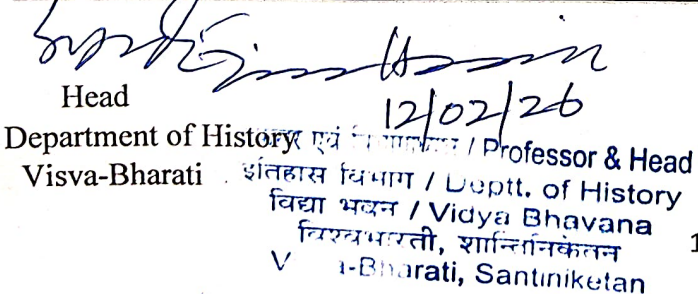 12/02/26
Head
Department of History
Visva-Bharati
एवं / Professor & Head
इतिहास विभाग / Deptt. of History
विद्या भवन / Vidya Bhavana
विश्वभारती, शान्तिनिकेतन
-Bharati, Santiniketan
1